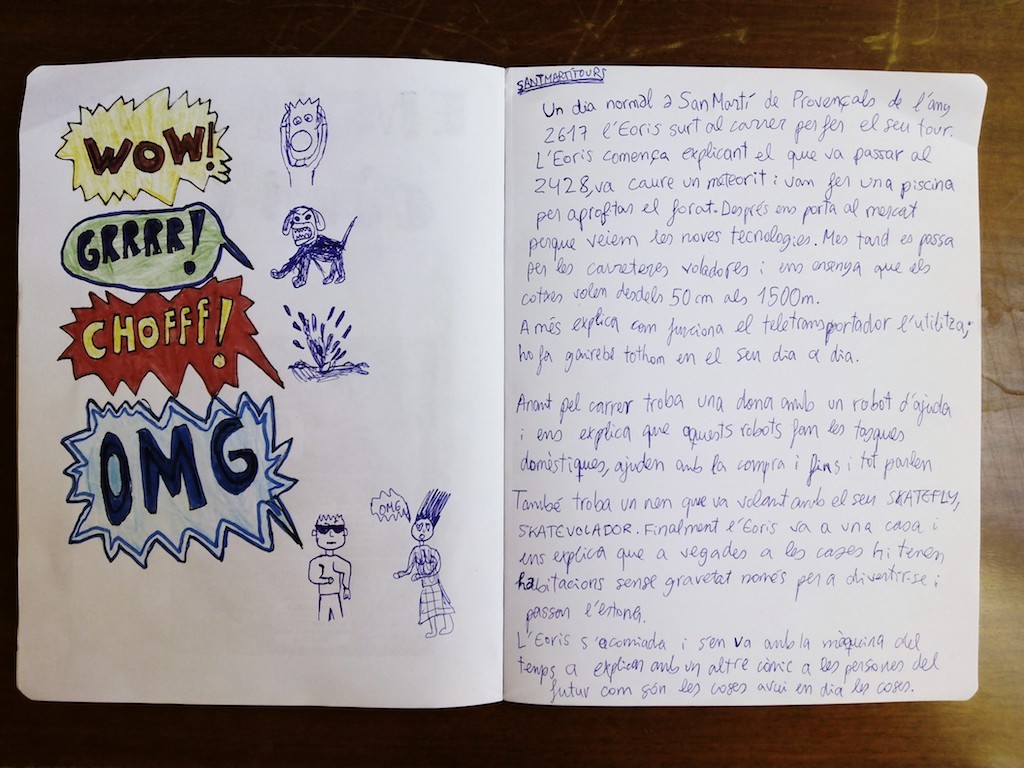 WOW!
GRRRR!
CHOFFF!
OMG
OMG
SANTMARTÍTOURS
Un dia normal a San Martí de Provençals de l'any
2617 l'Eoris surt al carrer per fer el seu tour.
L'Eoris comença explicant el que va passar al
2428, va caure un meteorit i van fer una piscina
per aprofitar el forat. Després ens porta al mercat
perque veiem les noves tecnologies. Mes tard es passa
per les carreteres voladores i ens ensenya que els
cotxes volen desdels 50 cm als 1500m.
A més explica com funciona el teletransportador l'utilitza;
ho fa gairebé tothom en el seu dia a dia.
Anant pel carrer troba una dona amb un robot d'ajuda
i ens explica que aquests robots fan les tasques
domèstiques, ajuden amb la compra i fins i tot parlen
També troba un nen que va volant amb el seu SKATEFLY,
SKATEVOLADOR. Finalment l'Eoris va a una casa i
ens explica que a vegades a les cases hi tenen
habitacions sense gravetat només per a divertir-se i
passar l'estona.
L'Eoris s'acomiada i s'en va amb la màquina del
temps a explicar amb un altre cònic a les persones del
futur com són les coses avui en dia les coses.